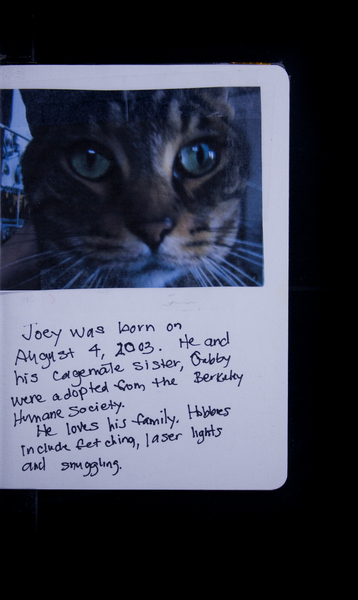 Joey was born on
August 4, 2003. He and
his cagemate sister, Gabby
were adopted from the Berkely
Humane Society.
He loves his family. Hobbies
include fetching, laser lights
and snuggling.